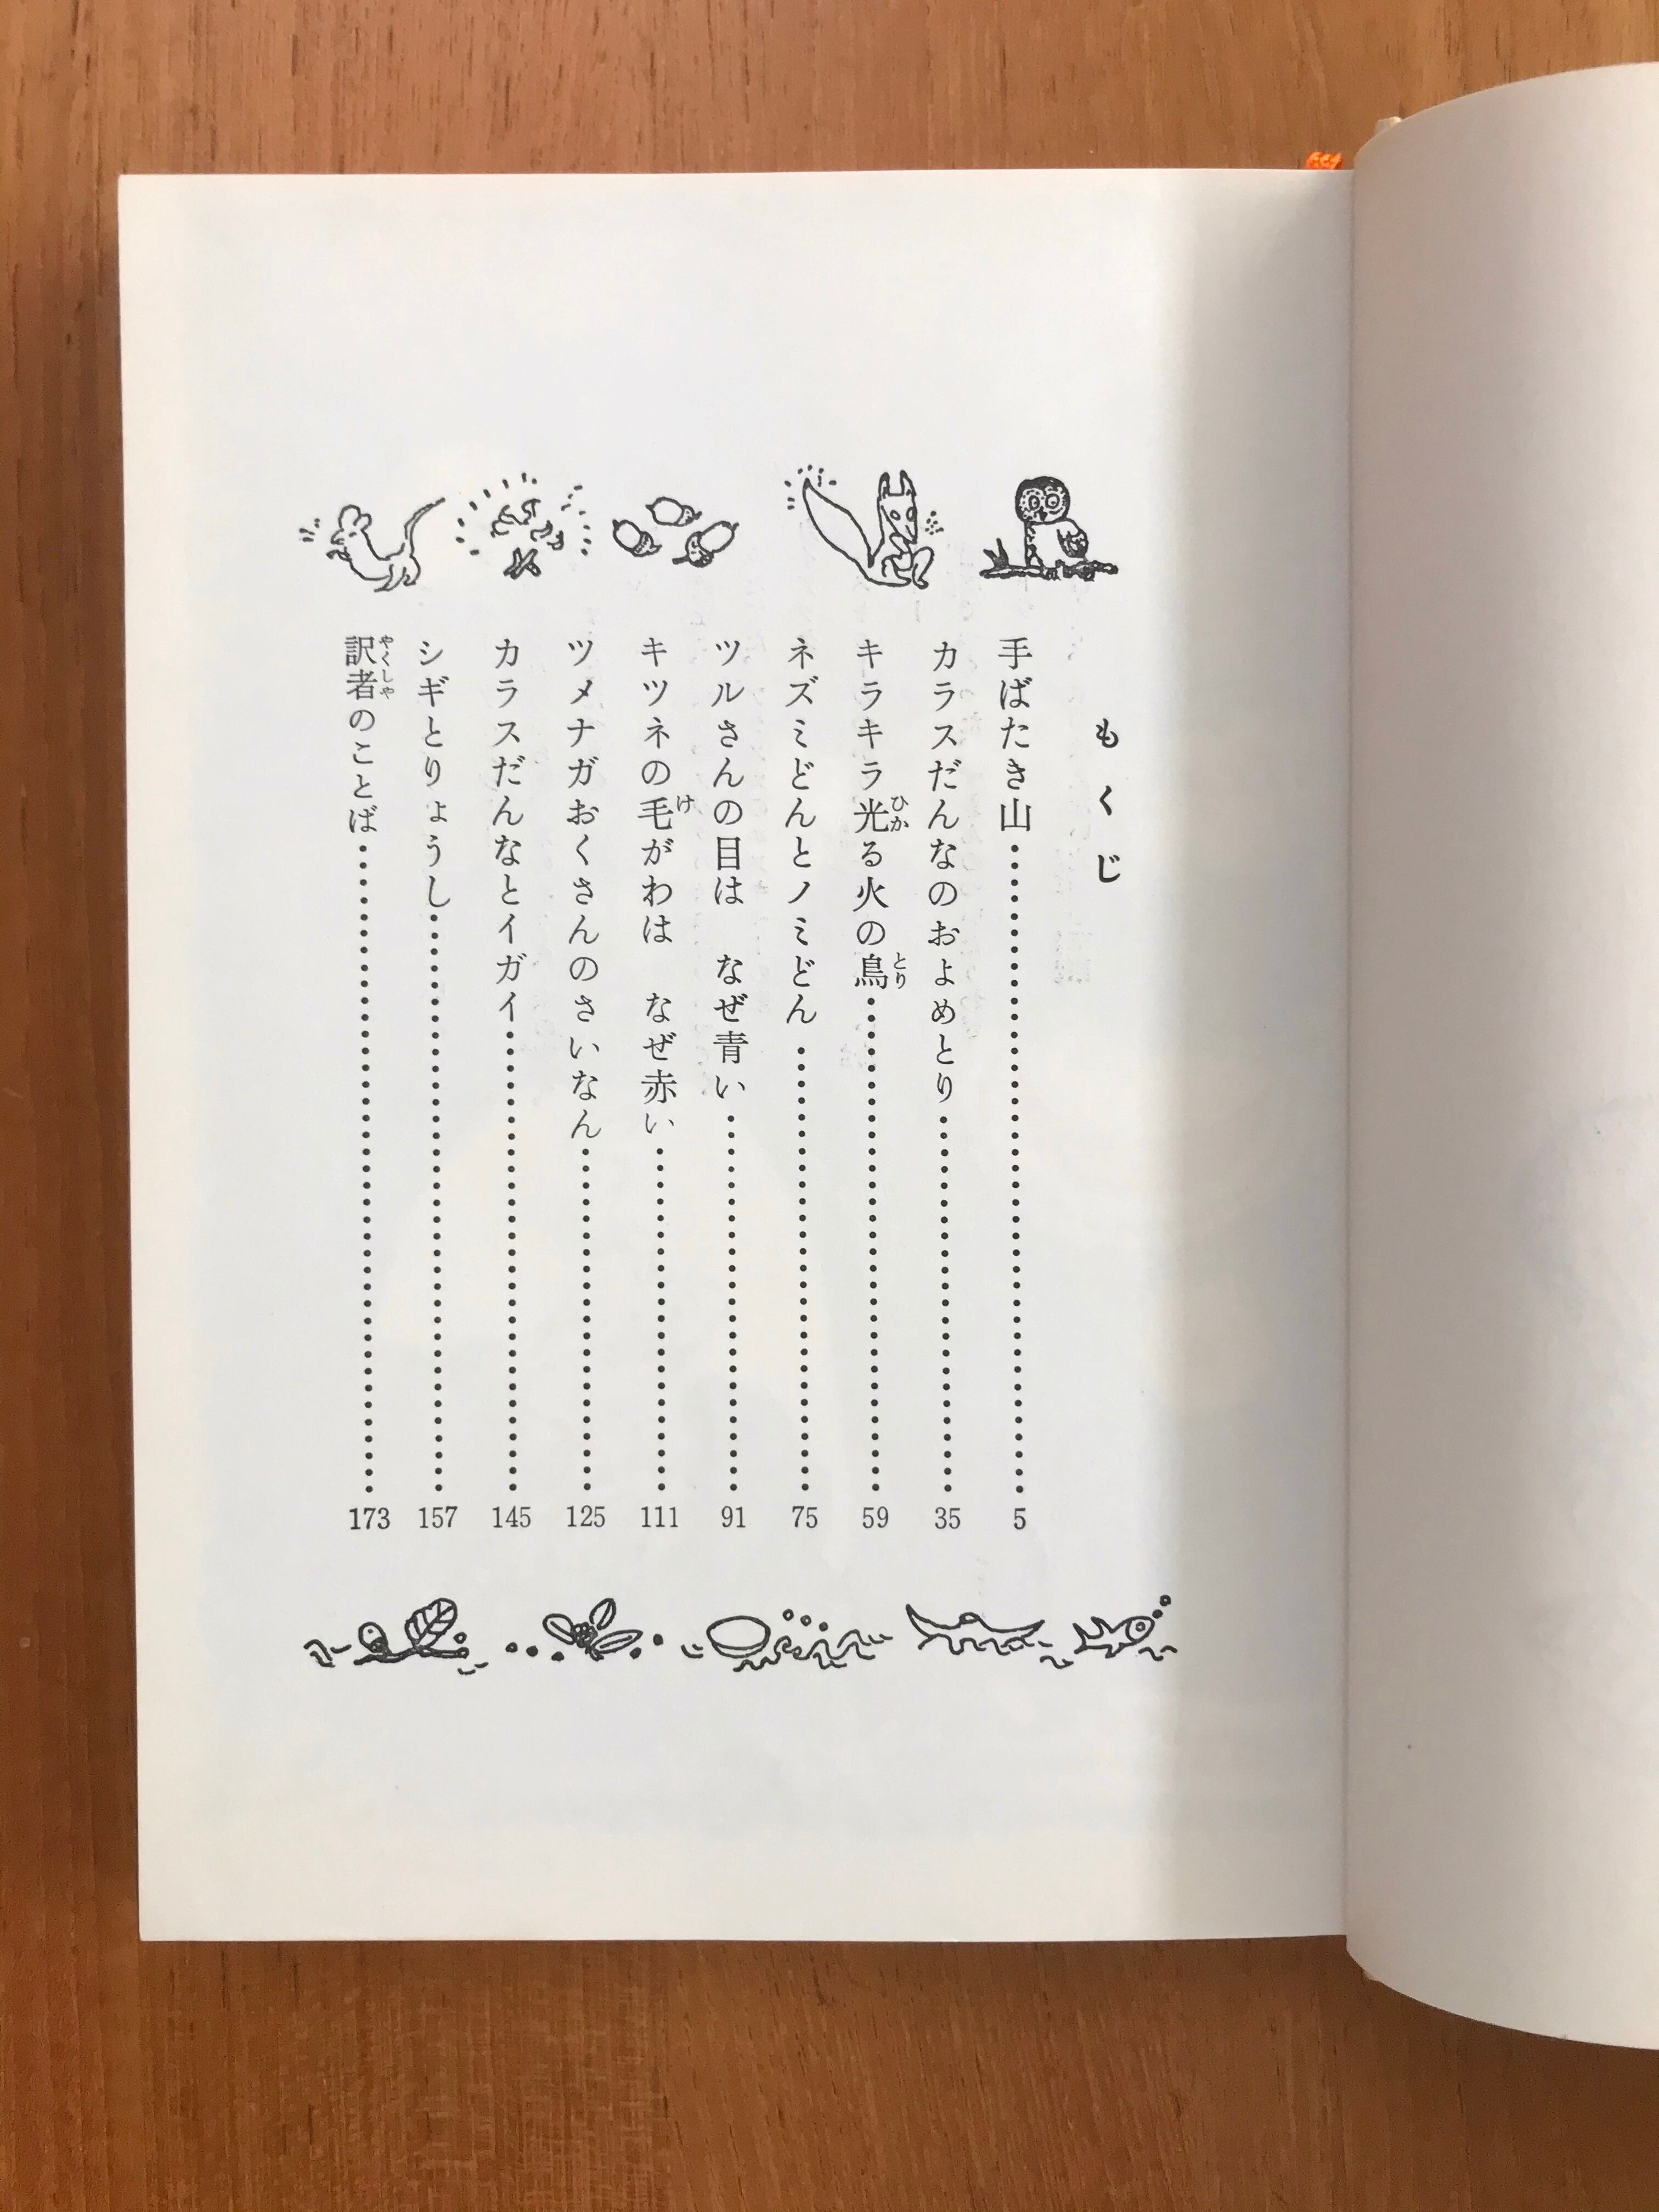 もくじ
手ばたき山……………………………5
カラスだんなのおよめとり……………………………35
キラキラ光る火の鳥……………………………59
ネズミどんとノミどん……………………………75
ツルさんの目は　なぜ青い……………………………91
キツネの毛がわは　なぜ赤い……………………………111
ツメナガおくさんのさいなん……………………………125
カラスだんなとイガイ……………………………145
シギとりょうし……………………………157
訳者のことば……………………………173